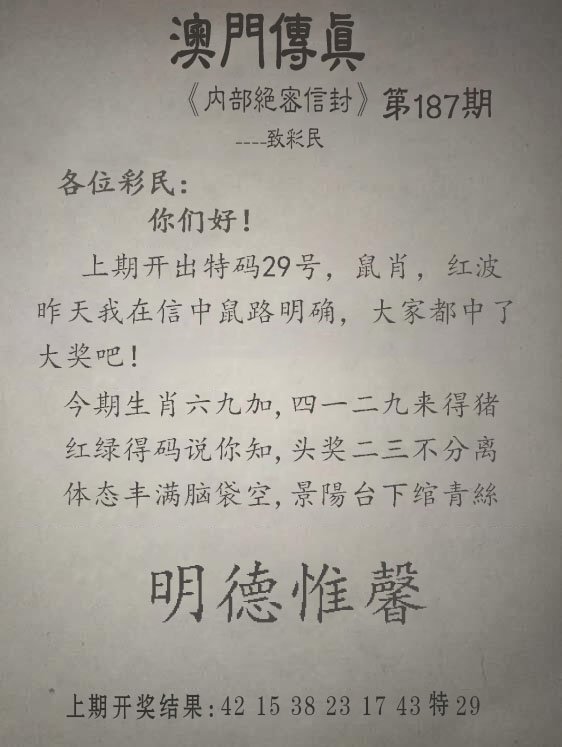 澳門傳眞
《内部絕密信封》第187期
----致彩民
各位彩民：
你们好！
上期开出特码29号，鼠肖，红波
昨天我在信中鼠路明确，大家都中了
大奖吧！
今期生肖六九加,四一二九来得猪
红绿得码说你知,头奖二三不分离
体态丰满脑袋空,景陽台下绾青絲
明德惟馨
上期开奖结果:42 15 38 23 17 43特29